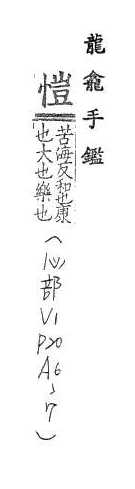 龍龕手鑑
愷
苦海反和也康
也大也樂也
(心部V1
P20
A6、7)